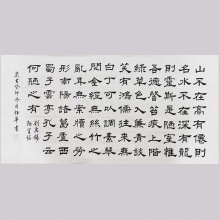 山不在高有僊則
名水不在深有龍
則靈斯是陋室惟
吾德馨苔痕上階
綠草色入簾青談
笑有鴻儒往來無
白丁可以調素琴
閱金經無絲竹之
亂耳無案牘之勞
形南陽諸葛廬西
蜀子雲亭孔子云
何陋之有
劉禹錫
陋室銘